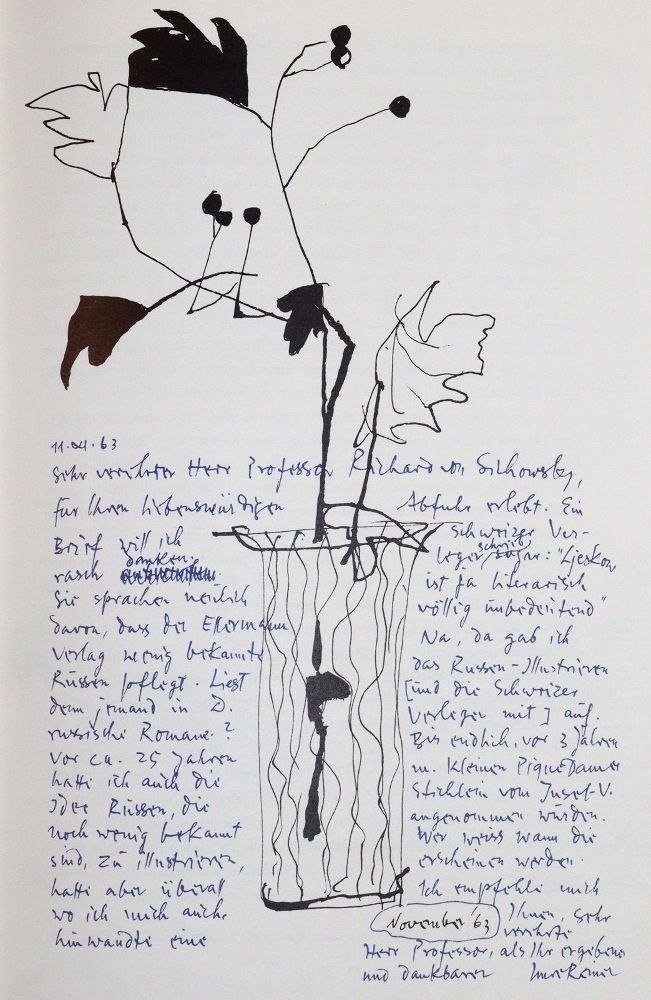 11.04.63
Sehr verehrter Herr Professor Richard von Sichowsky,
für Ihren liebenswürdigen
Brief will ich
danken.
rasch
Sie sprachen neulich
davon, dass der Ellermann
Verlag wenig bekannte
Russen pflegt. Liest
denn jemand in D.
russische Romane?
Vor ca. 25 Jahren
hatte ich auch die
Idee Russen, die
noch wenig bekannt
sind, zu illustrieren,
hatte aber überall
wo ich mich auch
hinwandte eine
Abfuhr erlebt. Ein
Schweizer Ver-
schrieb
leger sogar: "Ljeskow
ist ja literarisch
völlig unbedeutend"
Na, da gab ich
das Russen-Illustrieren
[und die Schweizer
Verleger mit] auf.
Bis endlich, vor 3 Jahren
m. kleinen Pique Dame
Stichlein vom Insel-V.
angenommen wurden.
Wer weiss wann die
erscheinen werden.
Ich empfehle mich
Ihnen, sehr
November '63
verehrter
Herr Professor, als Ihr ergebener
und dankbarer Imre Reiner